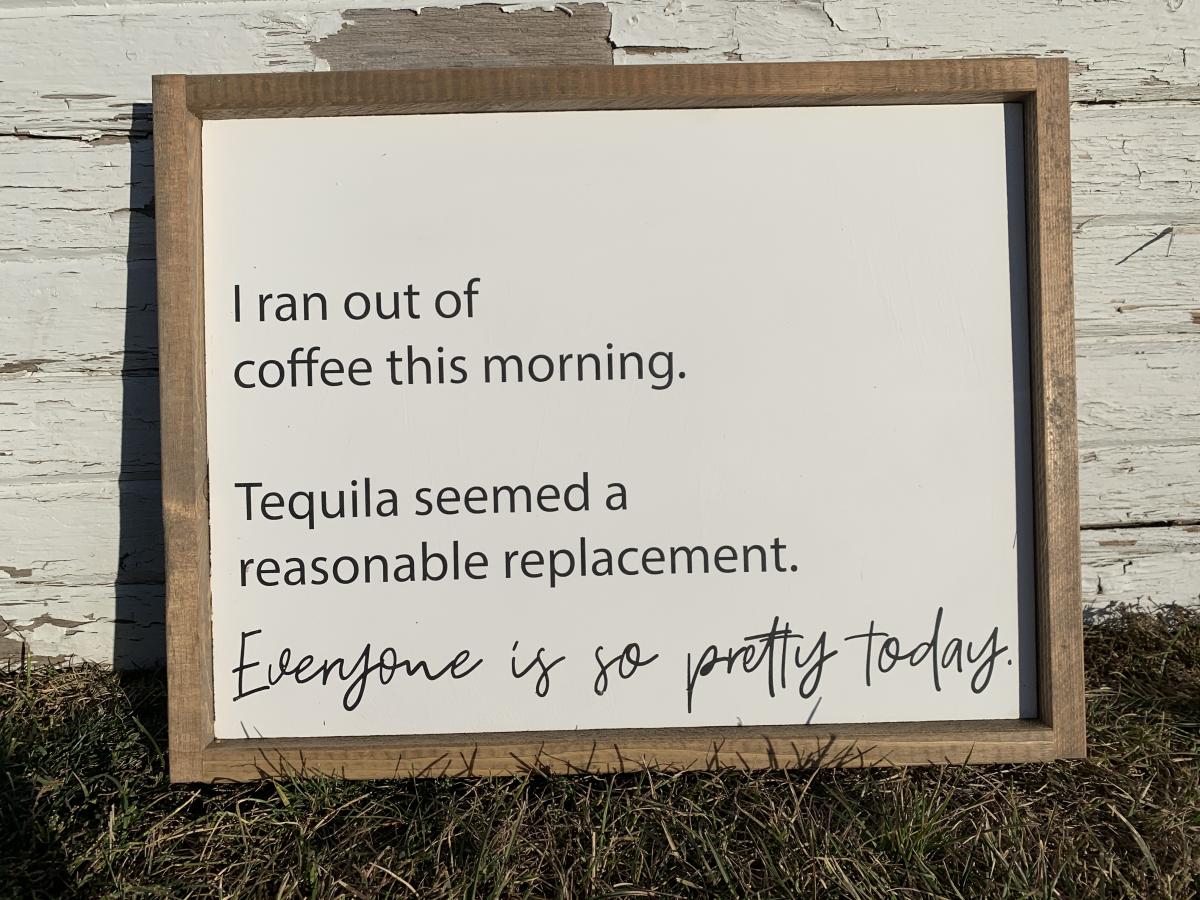 I ran out of
coffee this morning.
Tequila seemed a
reasonable replacement.
Everyone is so pretty today.